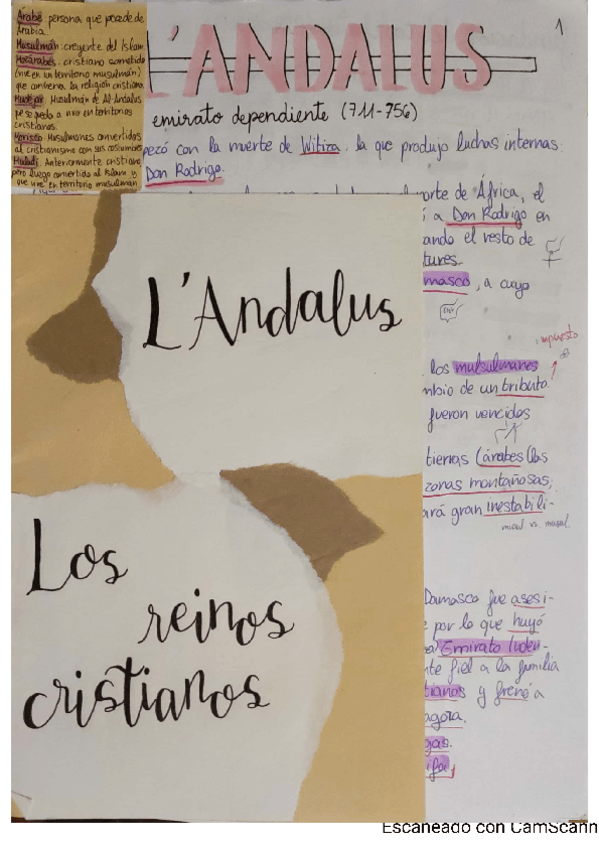 Árabe: persona que procede de
Arabia.
Musulmán: creyente del Islam
Mozárabes: cristiano sometido
que conserva la religión cristiana.
Mudéjar: Musulmán de Al-Andalus
que se queda a vivir en territorios
cristianos.
Morisco: Musulmanes convertidos
al cristianismo con sus costumbres
Muladí: Anteriormente cristiano
pero luego convertido al Islam y
que vive en territorio musulmán
1
L'ANDALUS
emirato dependiente (711-756)
pezó con la muerte de Witiza, la que produjo luchas internas:
Don Rodrigo.
orte de África, el
a Don Rodrigo en
ando el resto de
tures.
masco, a cuyo
impuesto
los musulmanes
mbio de un tributo.
fueron vencidos
tierras (árabes (las
zonas montañosas;
ará gran inestabili-
musul. vs. musul.
Damasco fue asesi-
por lo que huyó
Emirato Inden-
te fiel a la familia
tianos y frenó a
agora.
gas.
ifa,
L'Andalus
Los
reinos
cristianos
Escaneado con CamScann